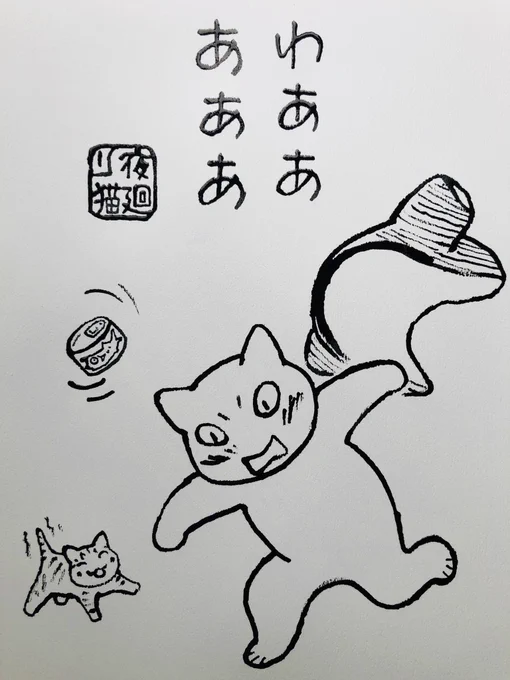 わああ
あああ
夜廻
り猫